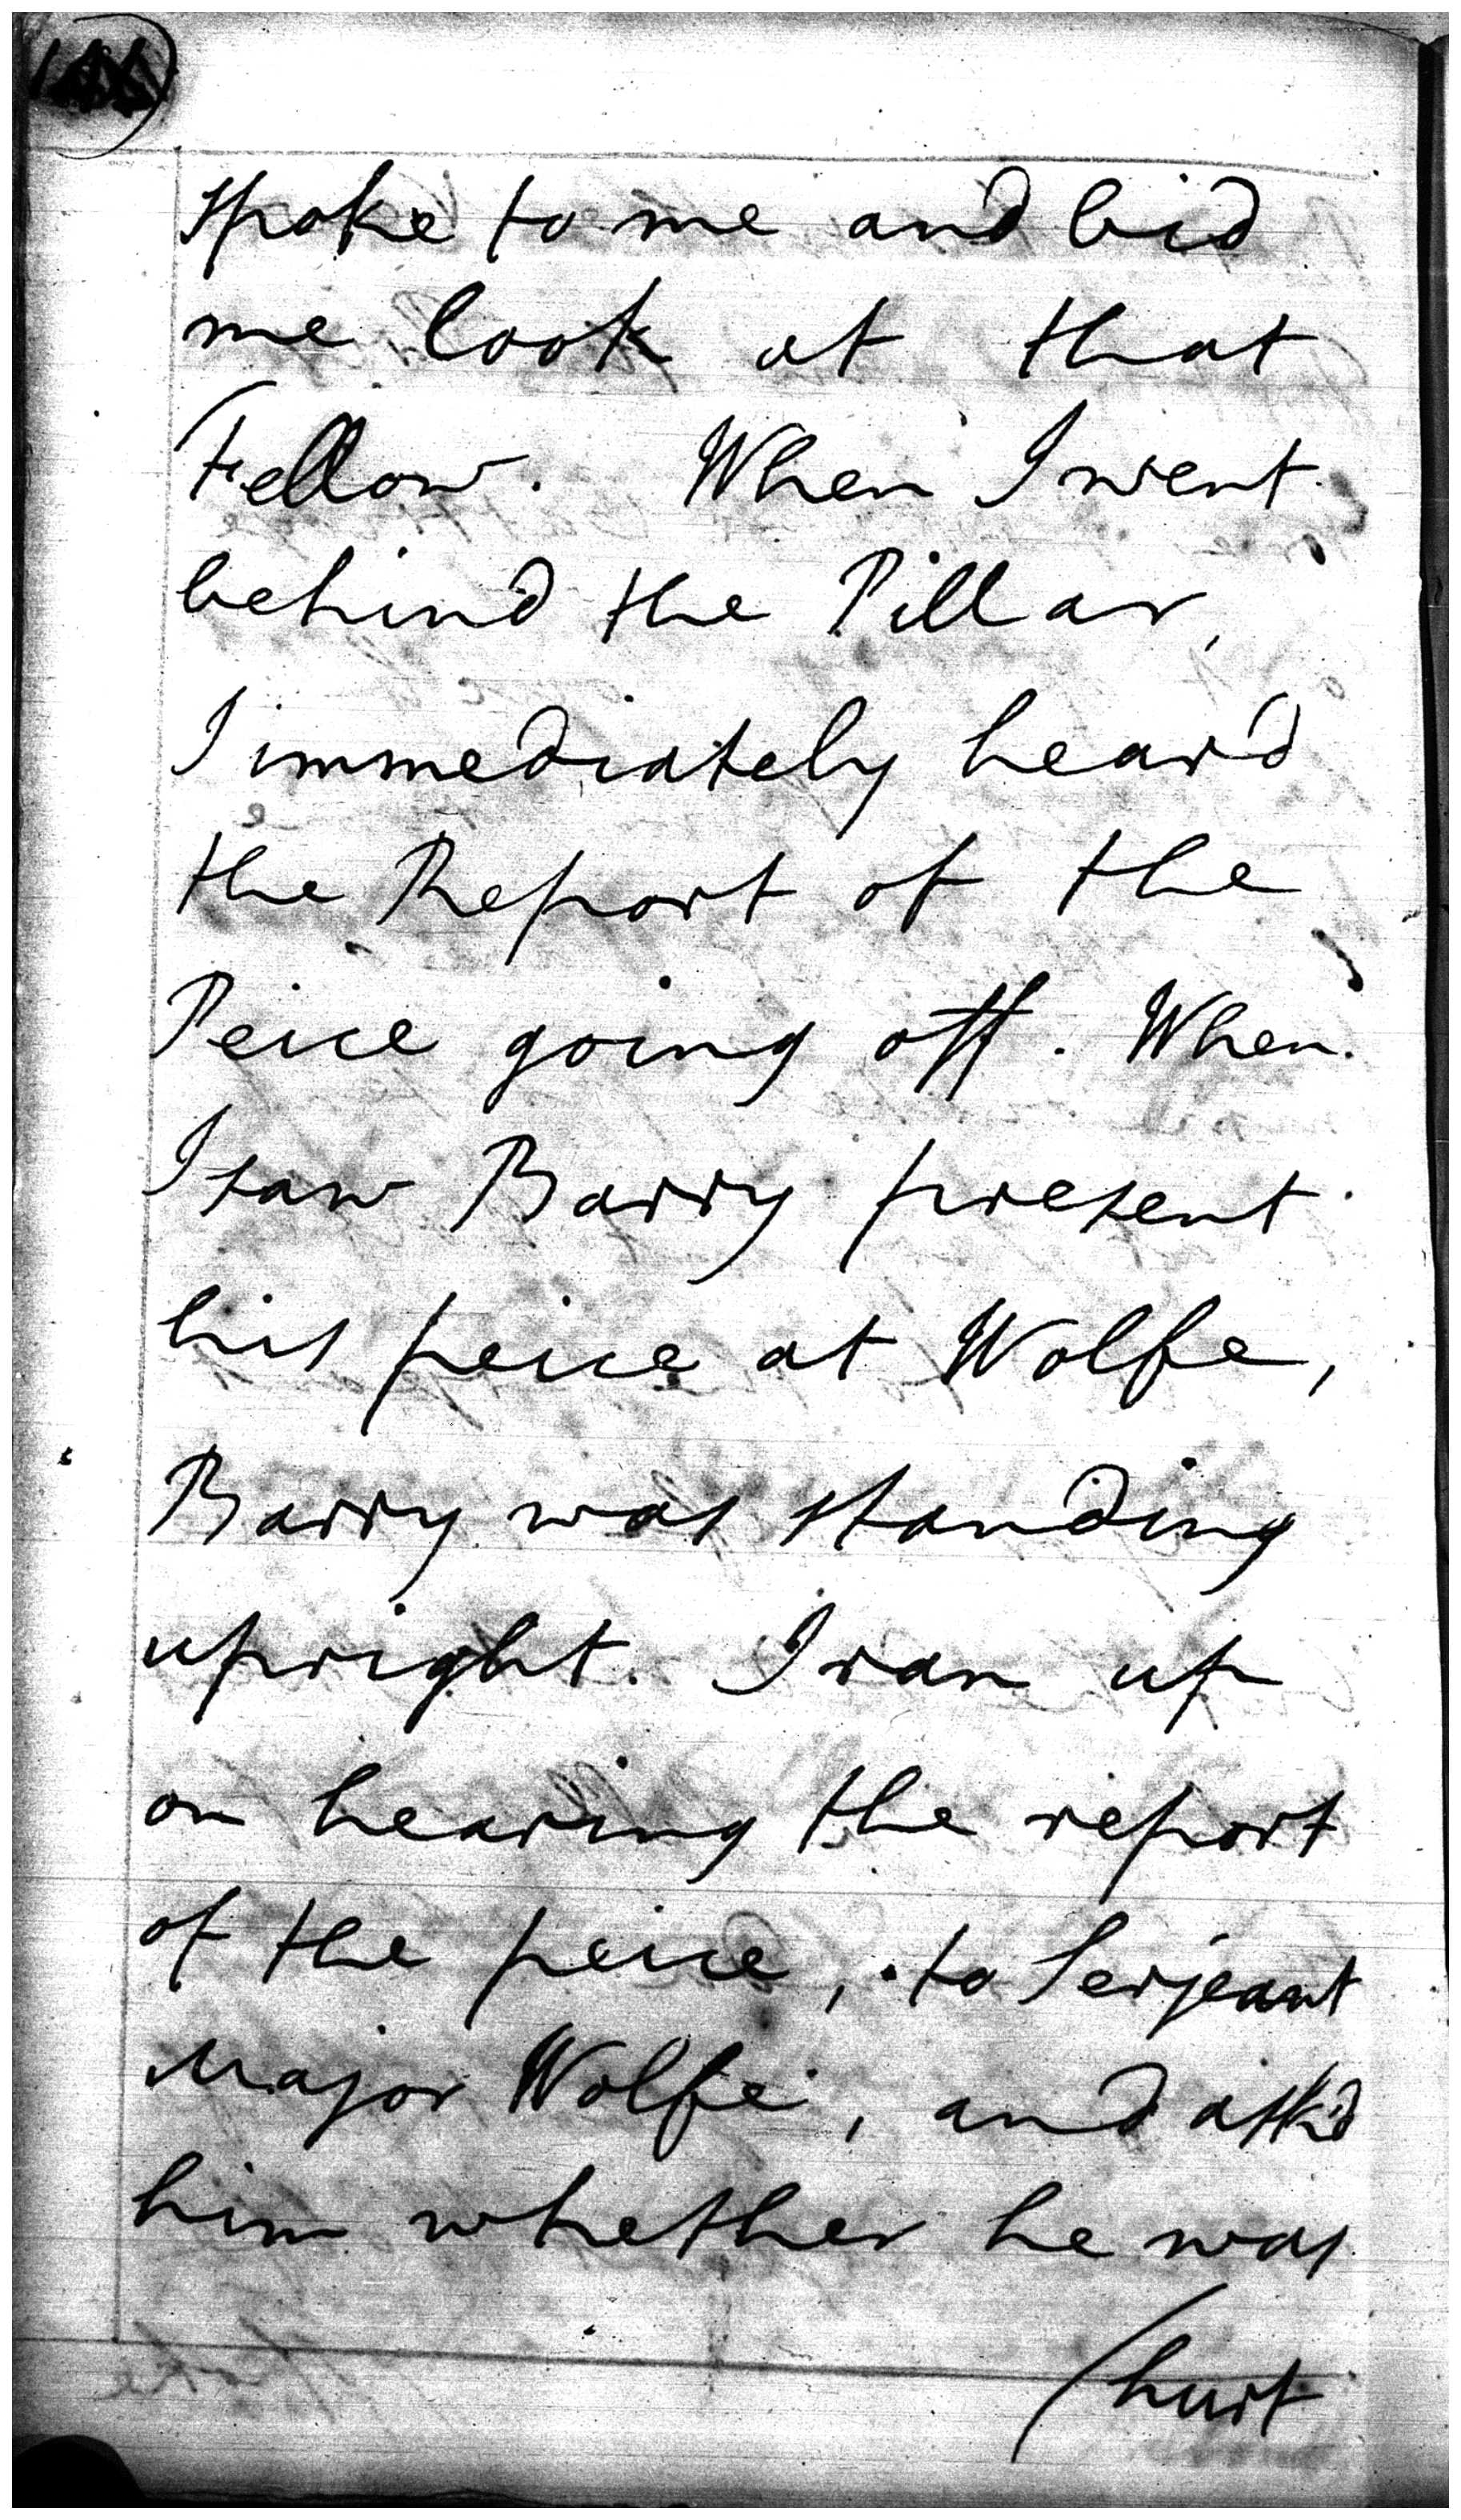 spoke to me and bid
me look at that
Fellow. When I went
behind the Pillar,
I immediately heard
the Report of the
Peice going off. When
I saw Barry present
his peice at Wolfe,
Barry was standing
upright. I ran up
on hearing the report
of the peice, to Serjeant
Major Wolfe, and ask'd
him whether he was
(hurt